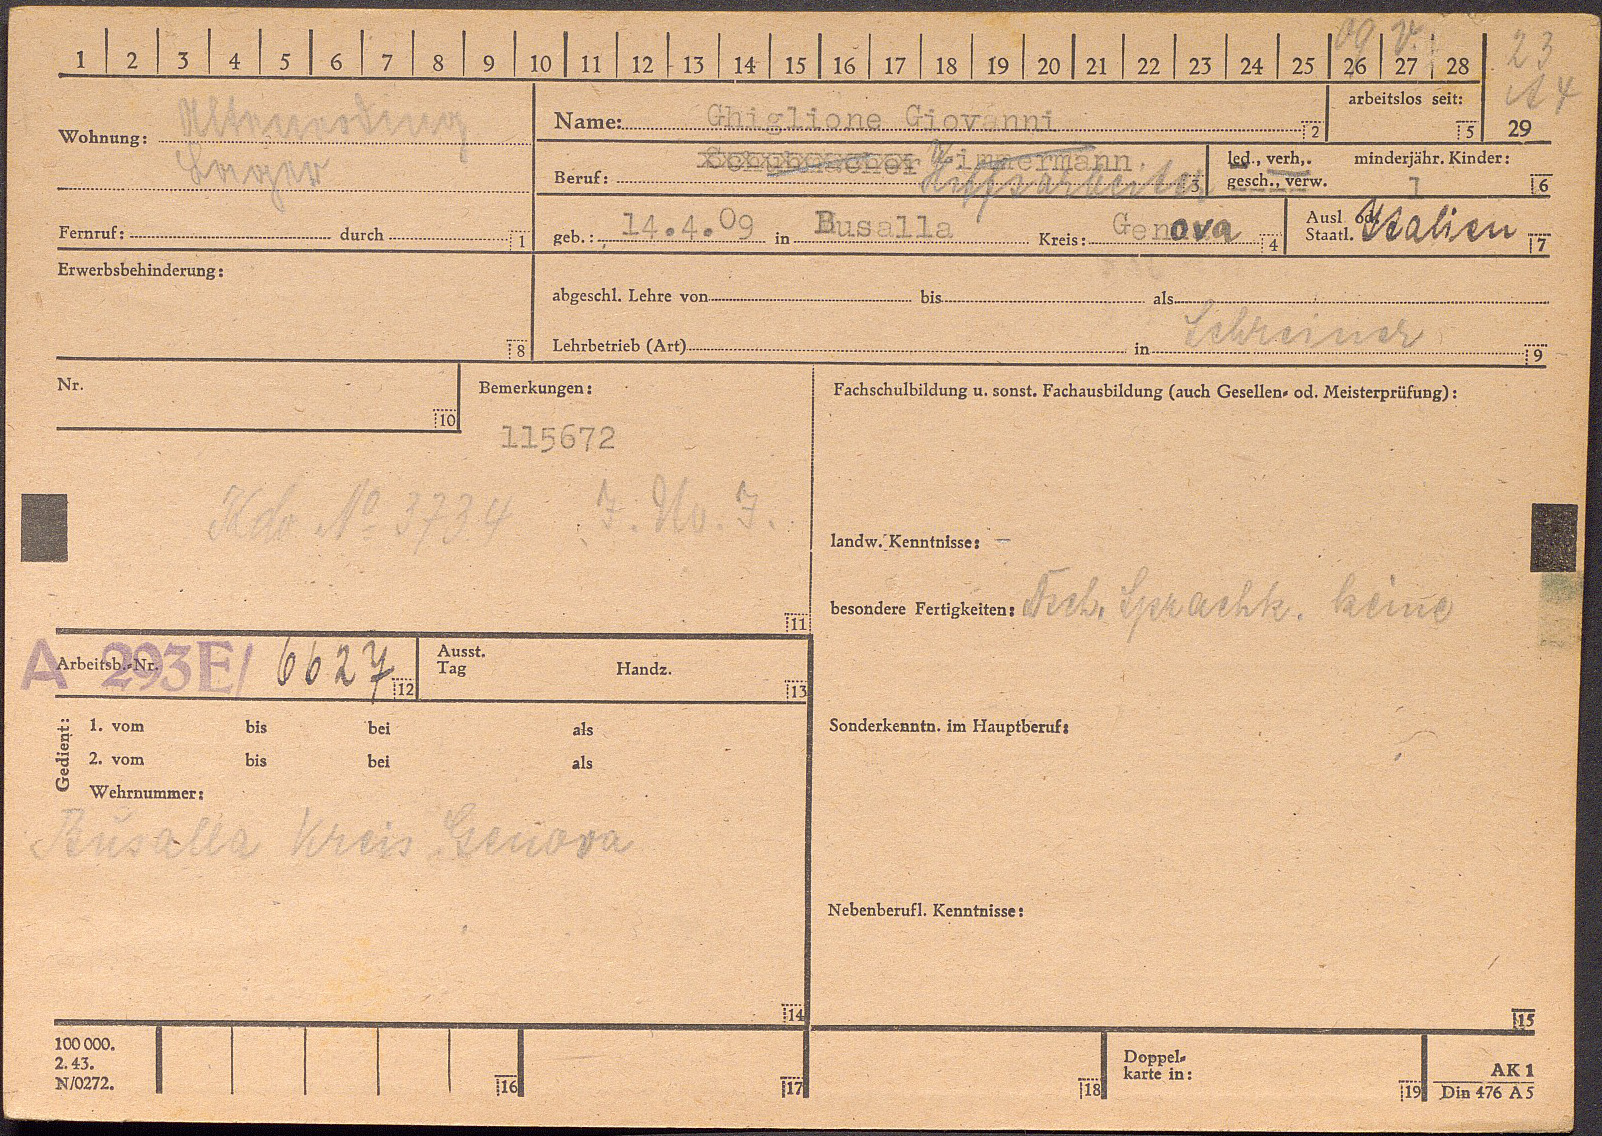 1 2 3 4 5 6 7 8 9 10 11 12 13 14 15 16 17 18 19 20 21 22 23 24 25 26 27 28
09 V. 23
A 4
29
Wohnung:
Lager
Fernruf: durch 1
Name: Ghiglione Giovanni 2
arbeitslos seit: 5
Beruf: Zimmermann.
Hilfsarbeiter 3
led., verh., minderjähr. Kinder:
gesch., verw. 1 6
geb.: 14.4.09 in Busalla Kreis: Genova 4
Ausl. od.
Staatl. Italien 7
Erwerbsbehinderung:
8
abgeschl. Lehre von bis als
Schreiner
Lehrbetrieb (Art) in 9
Nr.
10
Bemerkungen:
115672
Kdo No 3734 J. No. 7.
11
Fachschulbildung u. sonst. Fachausbildung (auch Gesellen- od. Meisterprüfung):
landw. Kenntnisse: –
besondere Fertigkeiten: Sprachk. keine
Sonderkenntn. im Hauptberuf:
Nebenberufl. Kenntnisse:
15
A 293E/ 6627
Arbeitsb.-Nr. 12
Ausst.
Tag Handz. 13
Gedient:
1. vom bis bei als
2. vom bis bei als
Wehrnummer:
Busalla Kreis Genova
14
100 000.
2. 43.
N/0272.
16 17 18
Doppel-
karte in: 19
AK 1
Din 476 A 5